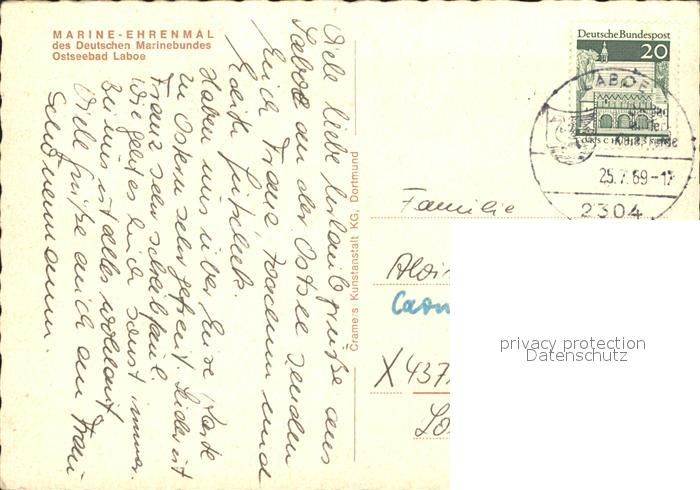 MARINE-EHRENMAL
des Deutschen Marinebundes
Ostseebad Laboe
Viele liebe Urlaubsgrüße aus
Laboe an der Ostsee senden
Euch Franz Joachim und
Edith
Haben uns über Eure Karte
zu Ostern sehr gefreut. Leider ist
Franz sehr schreibfaul.
Wie geht es Euch sonst immer.
Bei uns ist alles wohlauf.
Viele Grüße auch an Frau
Cramers Kunstanstalt KG, Dortmund
Deutsche Bundespost
20
LABOE
25.7.69-17
2304
Familie
Aloi
X 437
privacy protection
Datenschutz